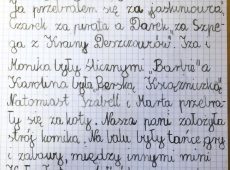 Ja przebrałem się za jaskiniowca,
Czarek za pirata a Darek za Szpie-
ga z Krainy Deszczowców". Iza i
Monika były ślicznymi „Barbie" a
Karolina była Perską Księżniczką"
Natomiast Izabell i Marta przebra-
ły się za koty. Nasza pani założyła
strój komika. Na balu były tańce gry
i zabawy, między innymi mini